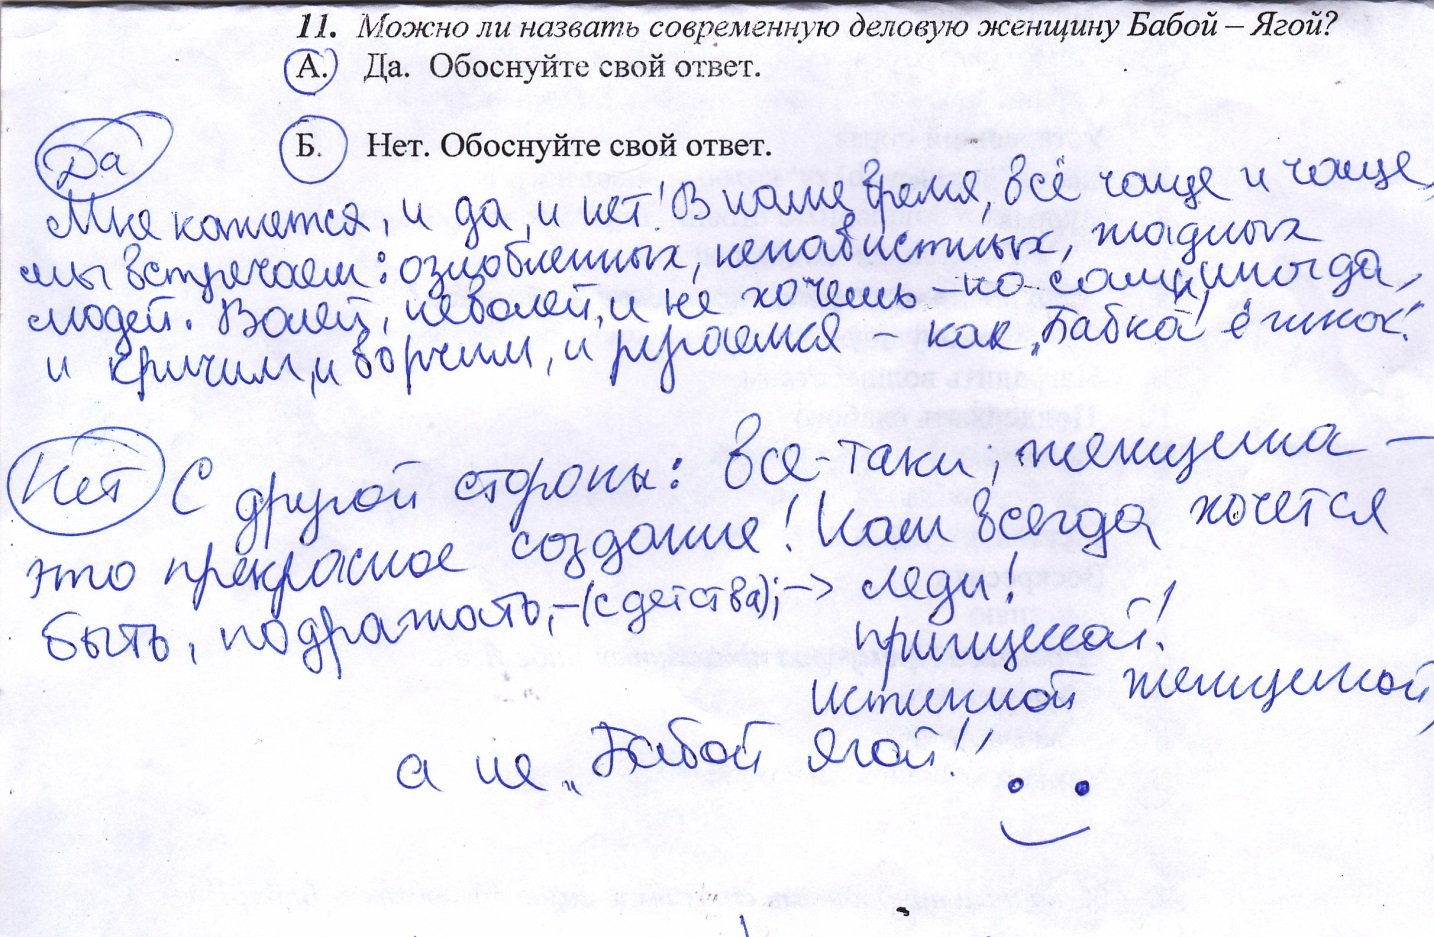 11. Можно ли назвать современную деловую женщину Бабой – Ягой?
А. Да. Обоснуйте свой ответ.
Б. Нет. Обоснуйте свой ответ.
Да
Мне кажется, и да, и нет! В наше время, всё чаще и чаще,
мы встречаем: озлобленных, ненавистных, жадных
людей. Волей, неволей, и не хочешь – но сами, иногда,
и кричим, и ворчим, и ругаемся как „Бабка ёжка“!
Нет С другой стороны: всё-таки, женщина –
это прекрасное создание! Нам всегда хочется
быть, подражать, – (с детства); -> леди!
принцессой!
истинной женщиной,
а не „Бабой ягой“!